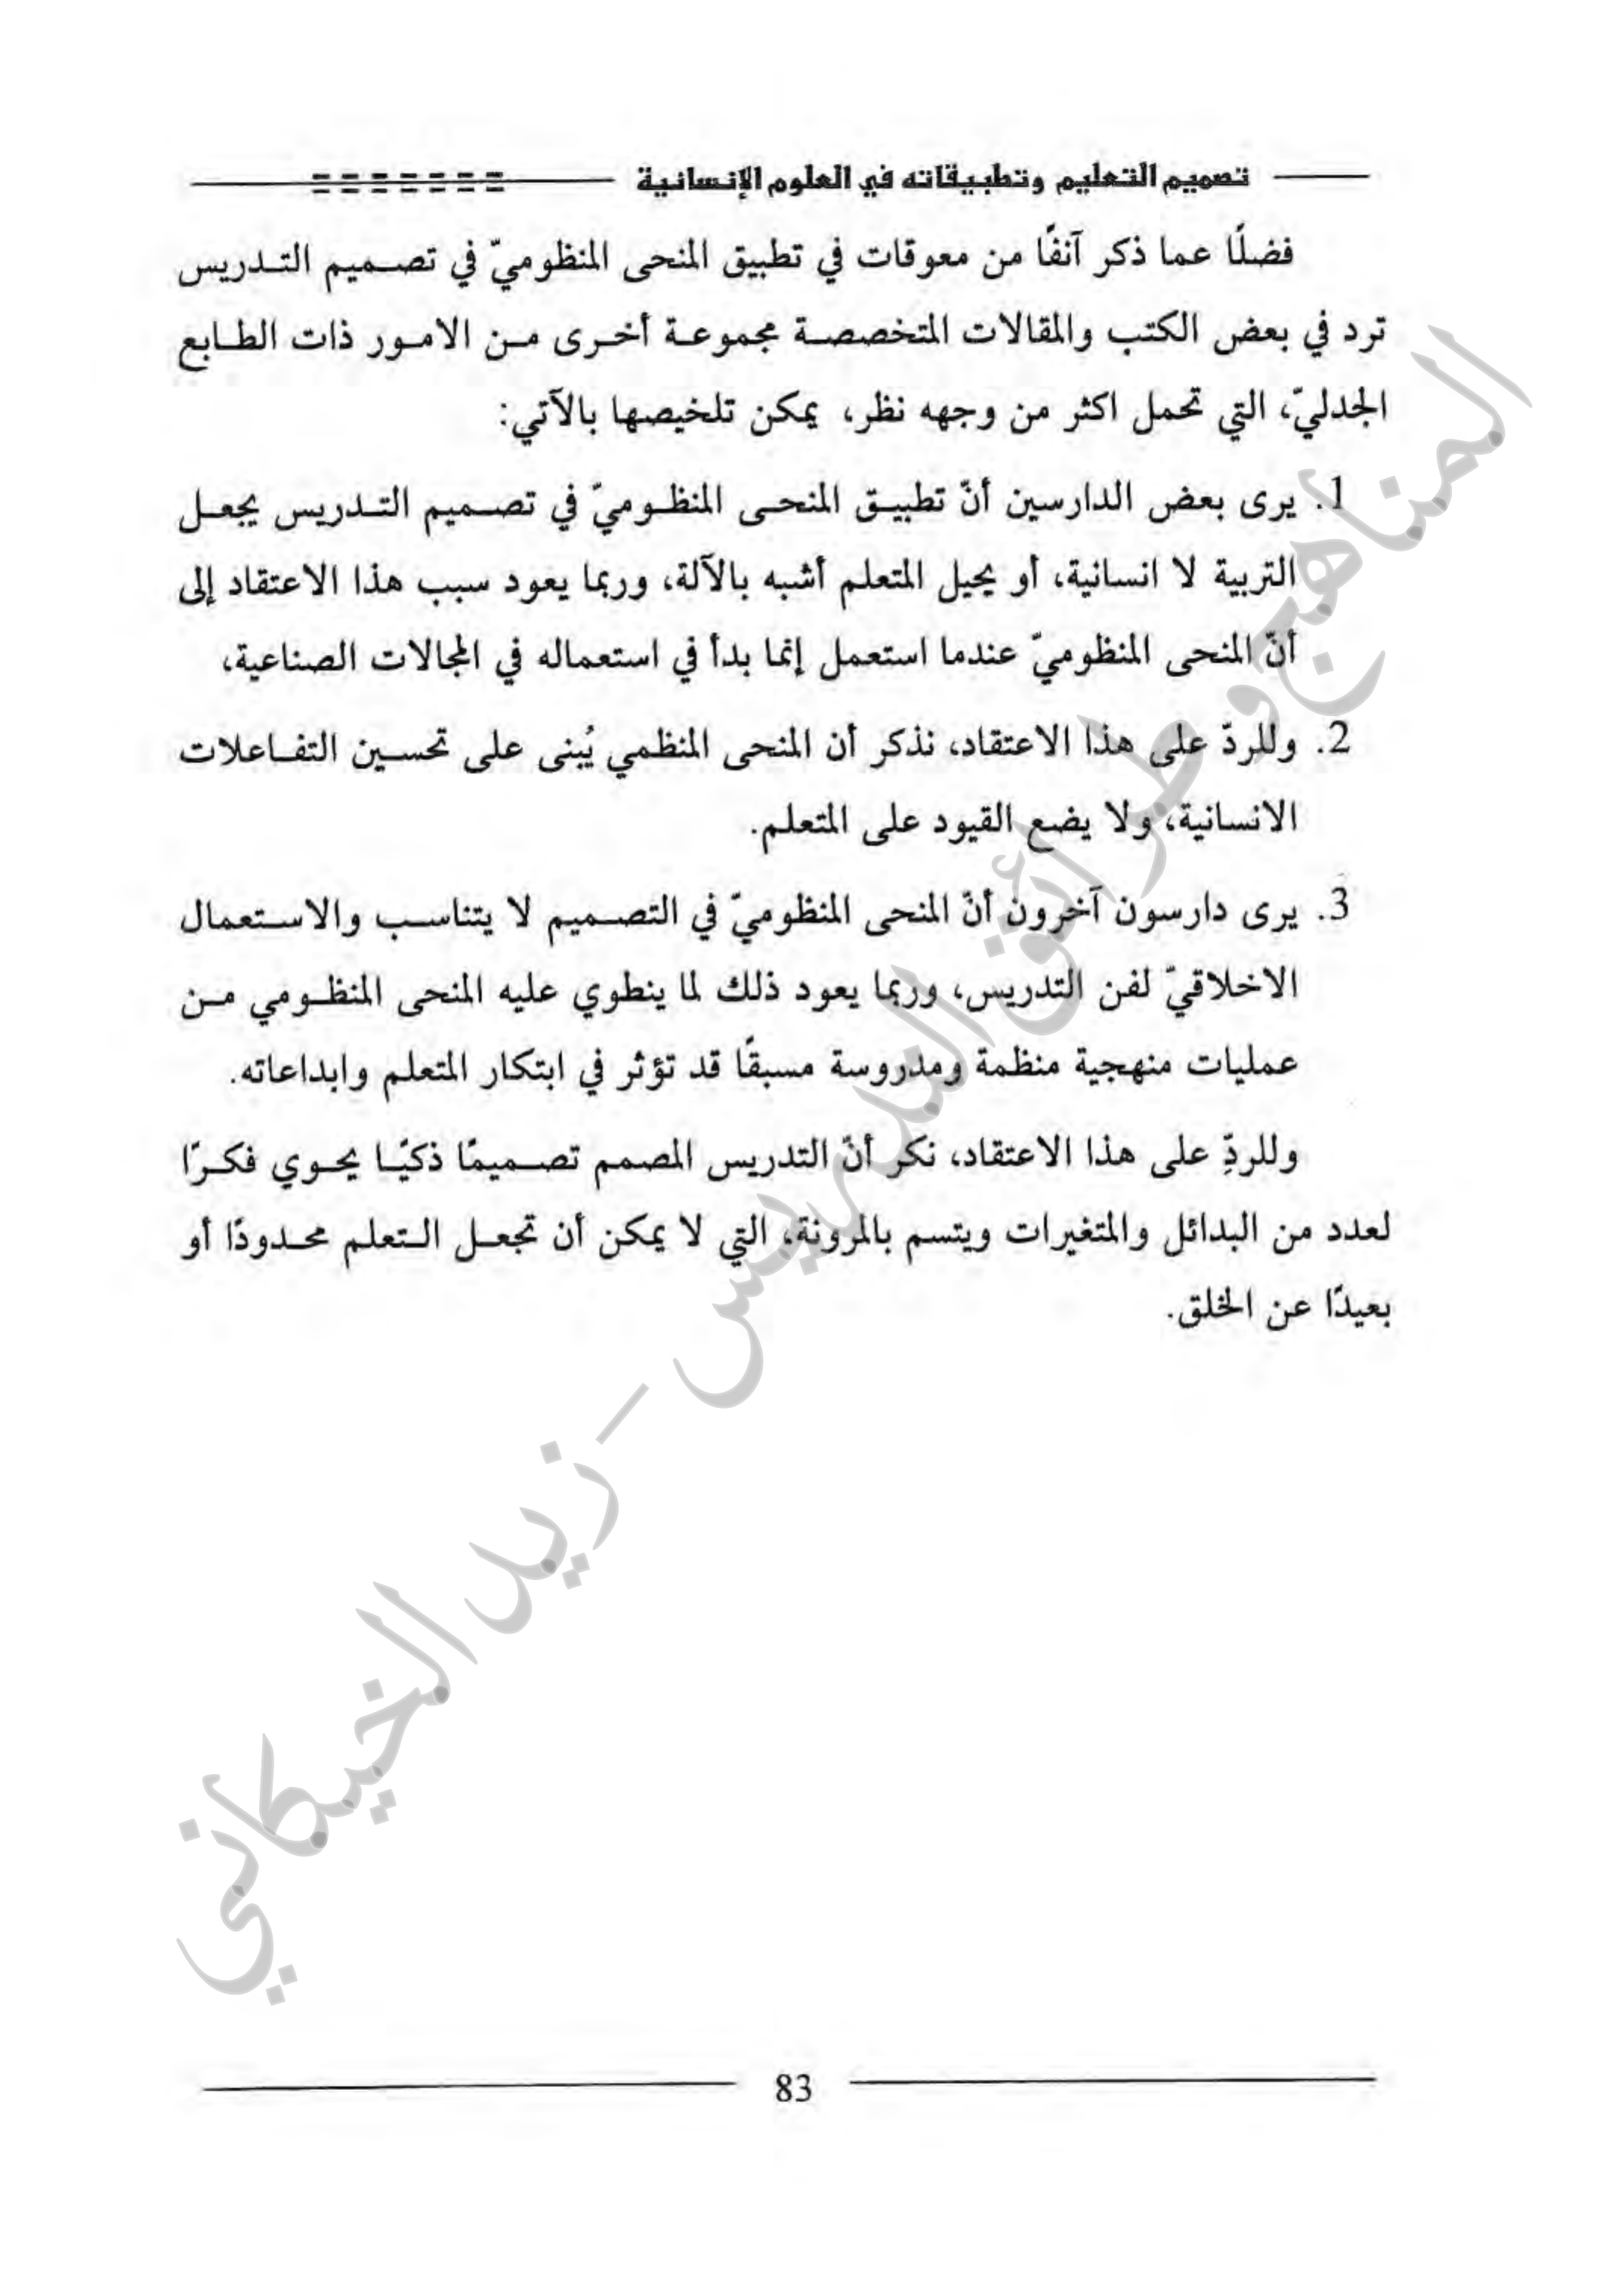 تصميم التعليم وتطبيقاته في العلوم الإنسانية
فضلًا عما ذكر آنفًا من معوقات في تطبيق المنحى المنظوميّ في تصميم التدريس
ترد في بعض الكتب والمقالات المتخصصة مجموعة أخرى من الامور ذات الطابع
الجدليّ، التي تحمل اكثر من وجهه نظر، يمكن تلخيصها بالآتي:
1. يرى بعض الدارسين أنّ تطبيق المنحى المنظوميّ في تصميم التدريس يجعل
التربية لا انسانية، أو يحيل المتعلم أشبه بالآلة، وربما يعود سبب هذا الاعتقاد إلى
أنّ المنحى المنظوميّ عندما استعمل إنما بدأ في استعماله في المجالات الصناعية،
2. وللردّ على هذا الاعتقاد، نذكر أن المنحى المنظمي يُبنى على تحسين التفاعلات
الانسانية، ولا يضع القيود على المتعلم.
3. يرى دارسون آخرون أنّ المنحى المنظوميّ في التصميم لا يتناسب والاستعمال
الاخلاقيّ لفن التدريس، وربما يعود ذلك لما ينطوي عليه المنحى المنظومي من
عمليات منهجية منظمة ومدروسة مسبقًا قد تؤثر في ابتكار المتعلم وابداعاته.
وللردِّ على هذا الاعتقاد، نكر أنّ التدريس المصمم تصميمًا ذكيًا يحوي فكرًا
لعدد من البدائل والمتغيرات ويتسم بالمرونة، التي لا يمكن أن تجعل التعلم محدودًا أو
بعيدًا عن الخلق.
المناهج وطرائق التدريس - زيد الخيكاني
83